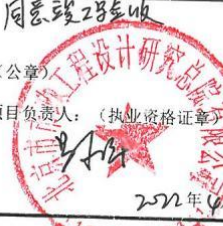 同意竣工验收
（公章）
项目负责人：（执业资格证章）
北京市政工程设计研究总院有限公司
2022年4